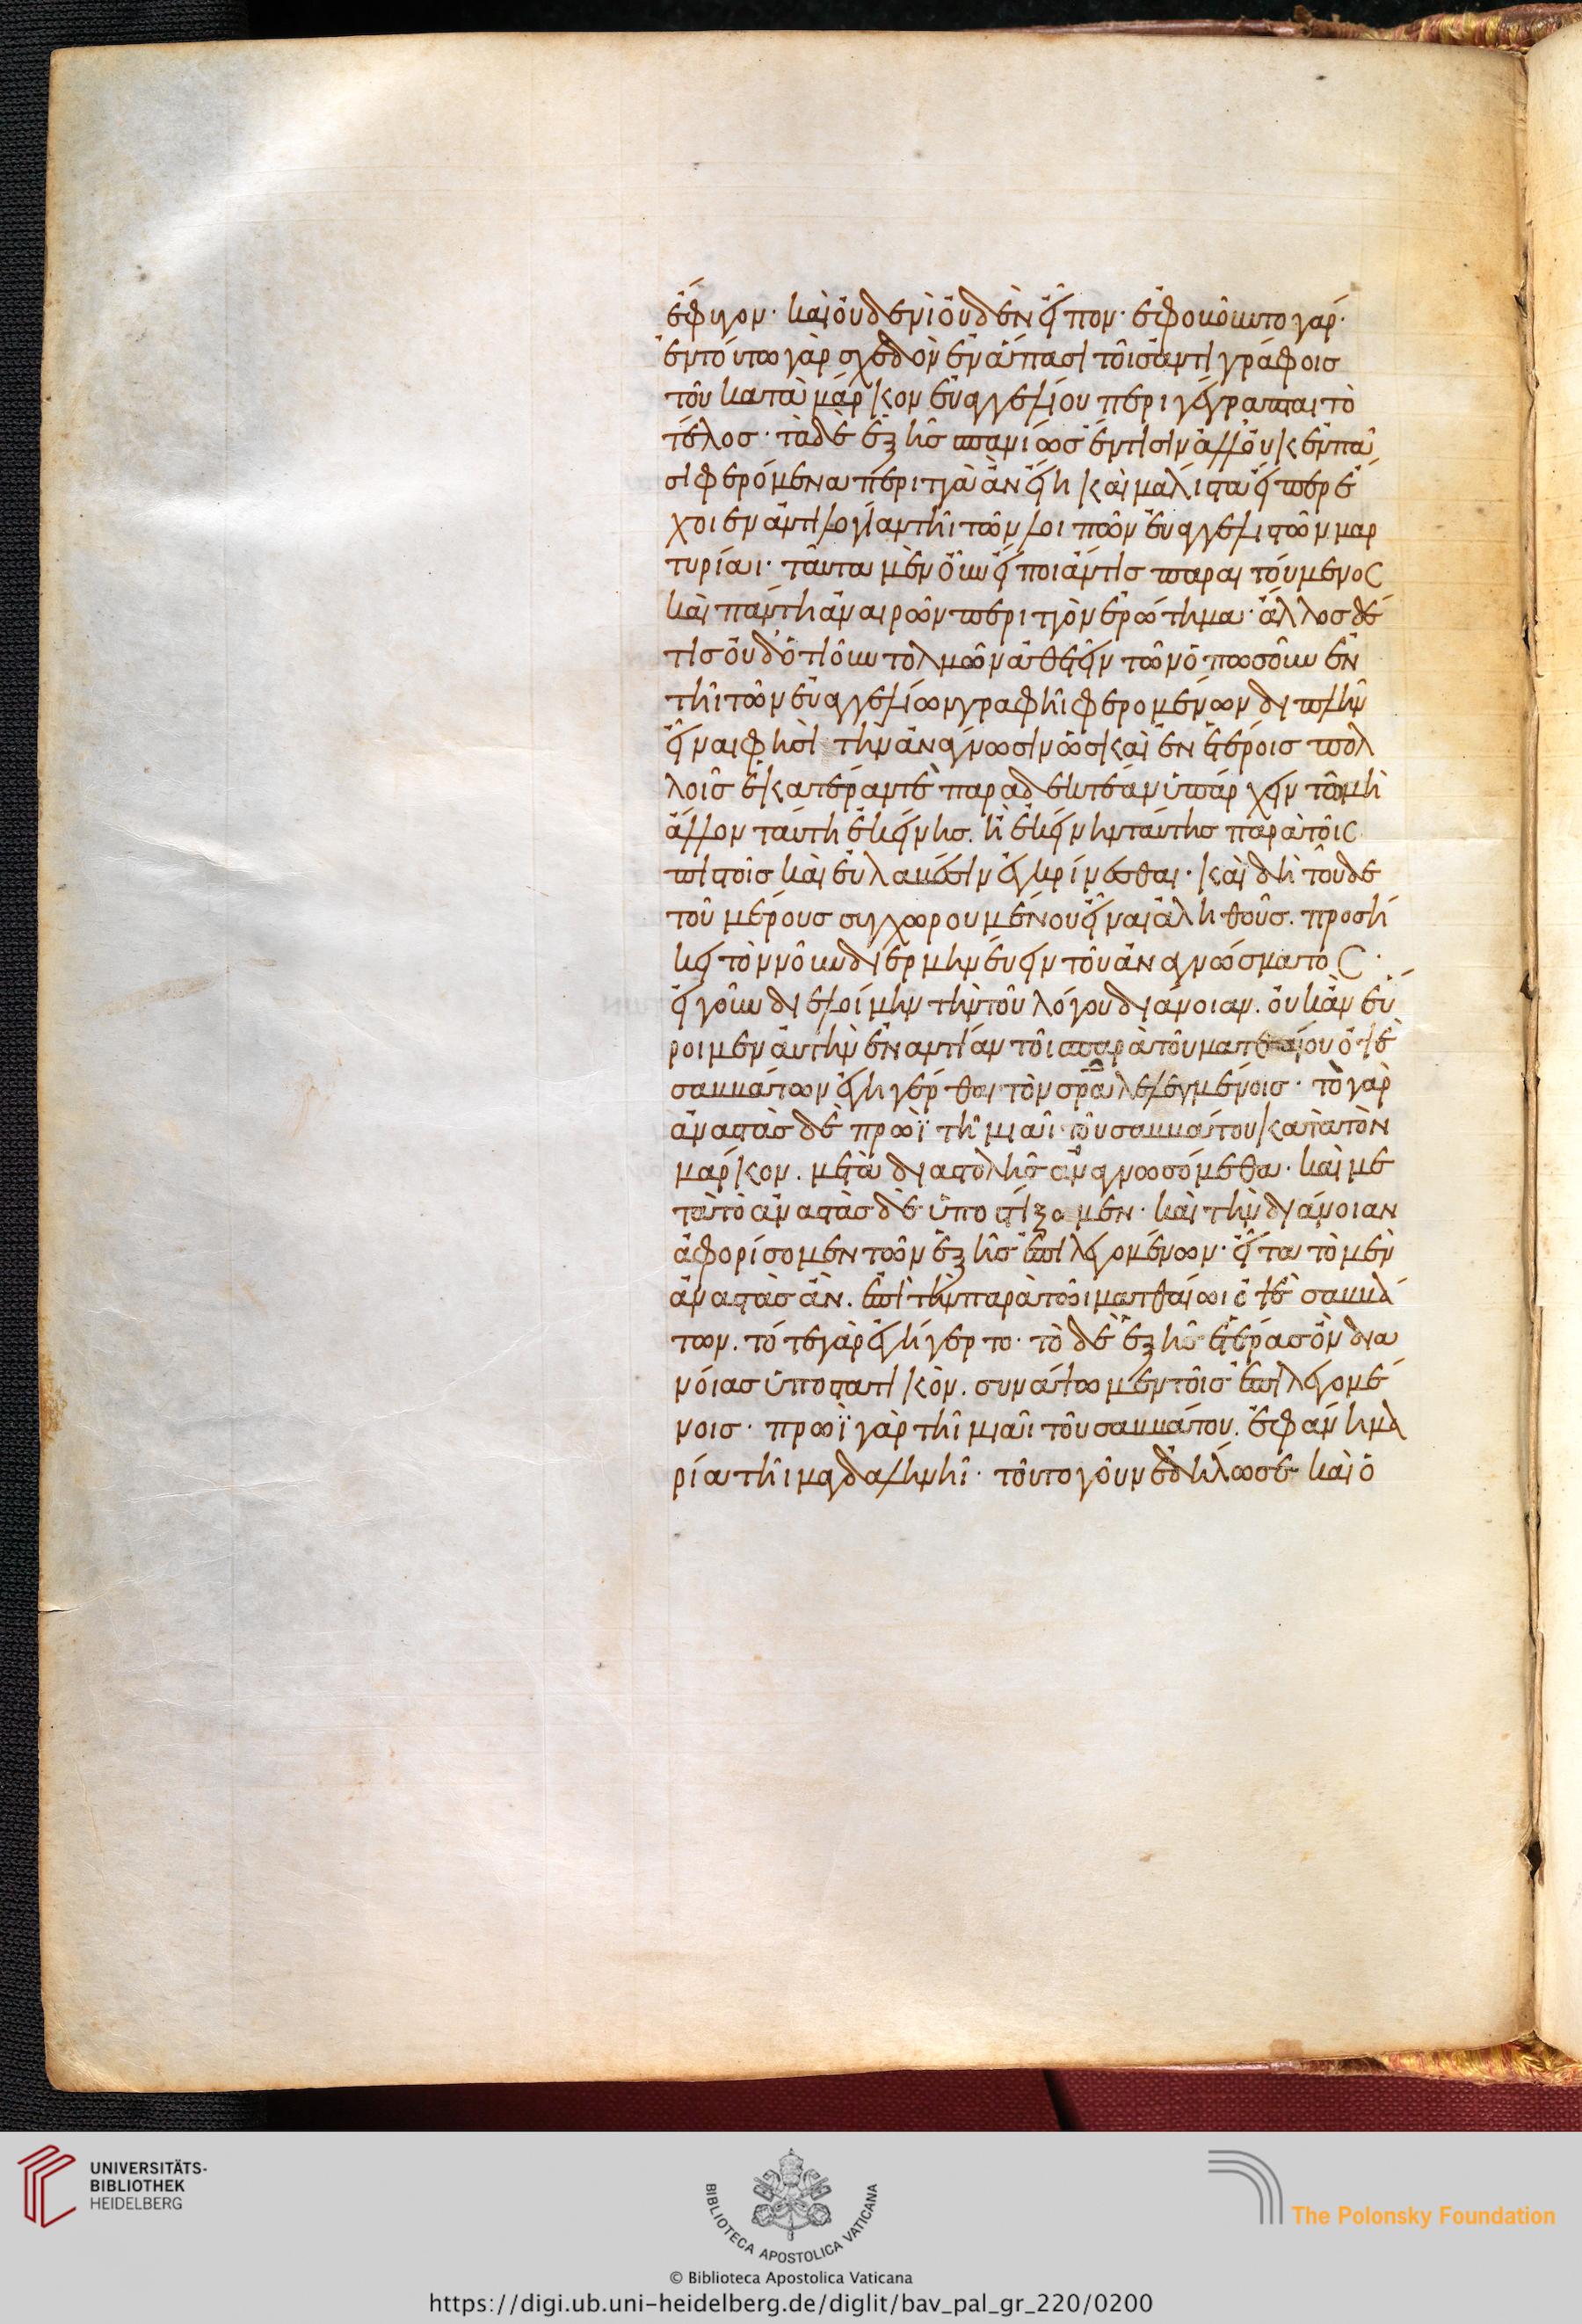 ἔφυγον· καὶ οὐδενὶ οὐδὲν εἶπον· ἐφοβοῦντο γάρ·
ἐν τούτω γὰρ σχεδὸν ἐν ἅπασι τοῖς ἀντιγράφοις
τοῦ κατὰ μάρκον εὐαγγελίου περιγέγραπται τὸ
τέλος· τὰ δὲ ἑξῆς σπανίως ἔν τισιν ἀλλ' οὐκ ἐν πᾶ
σι φερόμενα περιττὰ ἂν εἴη καὶ μάλιστα εἴπερ ἔ
χοιεν ἀντιλογίαν τῆι τῶν λοιπῶν εὐαγγελιστῶν μαρ
τυρίαι· ταῦτα μὲν οὖν εἴποι ἄν τις παραιτούμενος
καὶ πάντη ἀναιρῶν περιττὸν ἐρώτημα· ἄλλος δέ
τις οὐδ' ὁτιοῦν τολμῶν ἀθετεῖν τῶν ὁπωσοῦν ἐν
τῆι τῶν εὐαγγελίων γραφῆι φερομένων διπλῆν
εἶναι φησὶ τὴν ἀνάγνωσιν ὡς καὶ ἐν ἑτέροις πολ
λοῖς ἑκατέραν τε παραδεκτέαν ὑπάρχειν τῶ μὴ
ἄλλον ταύτη ἐκείνης. ἢ ἐκείνην ταύτης παρὰ τοῖς
πιστοῖς καὶ εὐλαβέσιν ἐγκρίνεσθαι· καὶ δὴ τοῦδε
τοῦ μέρους συγχωρουμένου εἶναι ἀληθοῦς. προσή
κει τὸν νοῦν διερμηνεύειν τοῦ ἀναγνώσματος·
εἰ γοῦν διέλοιμεν τὴν τοῦ λόγου διάνοιαν. οὐκ ἂν εὕ
ροιμεν αὐτὴν ἐναντίαν τοῖς παρὰ τοῦ ματθαίου ὀψὲ
σαββάτων ἐγηγέρθαι τὸν σρα λελεγμένοις· τὸ γὰρ
ἀναστὰς δὲ πρωῒ τῆ μιᾶι τοῦ σαββάτου κατὰ τὸν
μάρκον. μετὰ διαστολῆς ἀναγνωσόμεθα· καὶ με
τὰ τὸ ἀναστὰς δὲ ὑποστίξομεν· καὶ τὴν διάνοιαν
ἀφορίσομεν τῶν ἑξῆς ἐπιλεγομένων· εἶτα τὸ μὲν
ἀναστὰς ἂν. ἐπὶ τὴν παρὰ τῶι ματθαίωι ὀψὲ σαββά
των. τότε γὰρ ἐγήγερτο· τὸ δὲ ἑξῆς ἑτέρας ὂν δια
νοίας ὑποστατικὸν. συνάψωμεν τοῖς ἐπιλεγομέ
νοις· πρωῒ γὰρ τῆι μιᾶι τοῦ σαββάτου. ἐφάνη μα
ρία τῆι μαγδαληνῆι· τοῦτο γοῦν ἐδήλωσε καὶ ὁ
UNIVERSITÄTS-
BIBLIOTHEK
HEIDELBERG
BIBLIOTECA APOSTOLICA VATICANA
The Polonsky Foundation
© Biblioteca Apostolica Vaticana
https://digi.ub.uni-heidelberg.de/diglit/bav_pal_gr_220/0200